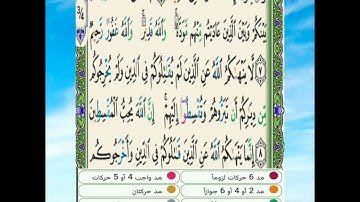 بَيْنَكُمْ وَبَيْنَ ٱلَّذِينَ عَادَيْتُم مِّنْهُم مَّوَدَّةً ۚ وَٱللَّهُ قَدِيرٌ ۚ وَٱللَّهُ غَفُورٌ رَّحِيمٌ
٧ لَّا يَنْهَىٰكُمُ ٱللَّهُ عَنِ ٱلَّذِينَ لَمْ يُقَٰتِلُوكُمْ فِى ٱلدِّينِ وَلَمْ يُخْرِجُوكُم
مِّن دِيَٰرِكُمْ أَن تَبَرُّوهُمْ وَتُقْسِطُوٓا۟ إِلَيْهِمْ ۚ إِنَّ ٱللَّهَ يُحِبُّ ٱلْمُقْسِطِينَ
٨ إِنَّمَا يَنْهَىٰكُمُ ٱللَّهُ عَنِ ٱلَّذِينَ قَٰتَلُوكُمْ فِى ٱلدِّينِ وَأَخْرَجُوكُم
مد 6 حركات لزوماً
مد واجب 4 أو 5 حركات
مد 2 أو 4 أو 6 جوازاً
مد حركتان